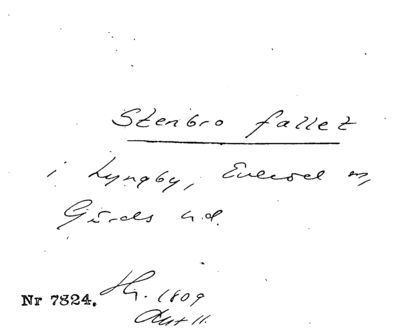 Stenbro fallet
i Lyngby, Everöd s,
Gärds h.d.
Nr 7824. Hg. 1809
Akt 11.